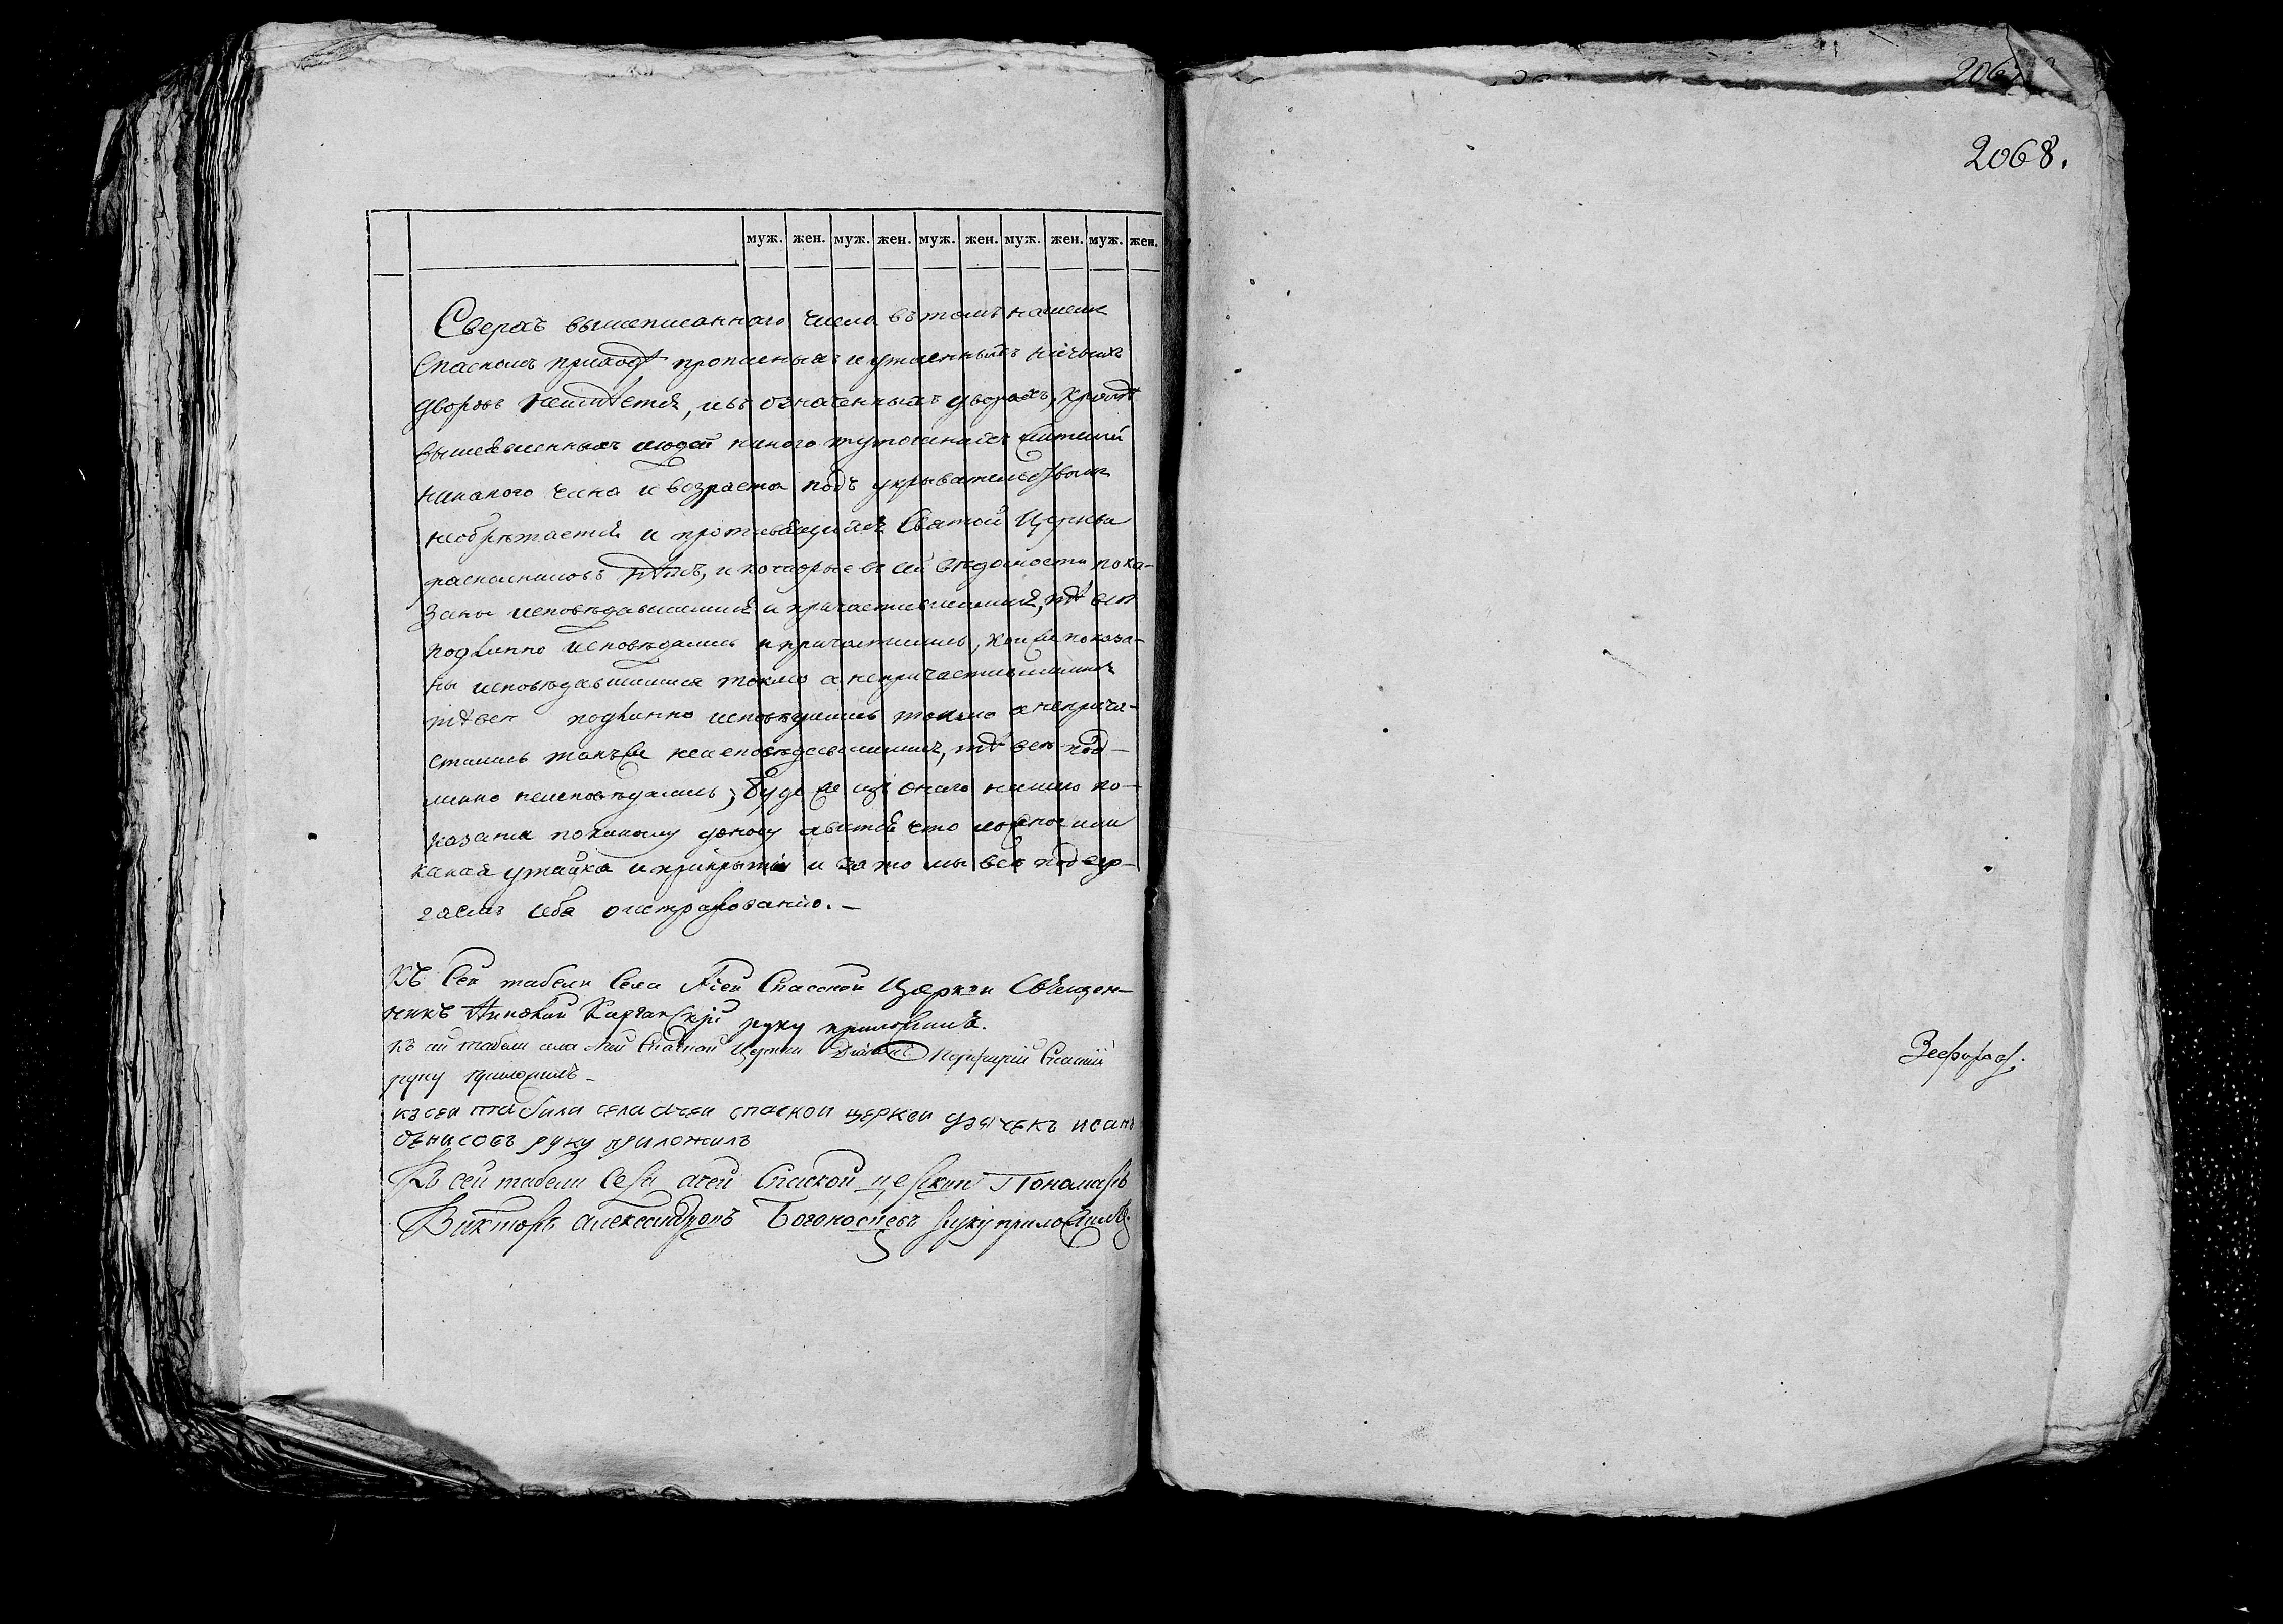 муж. жен. муж. жен. муж. жен. муж. жен. муж. жен.
Сверхъ вышеписаннаго числа въ томъ нашемъ
Спаскомъ приходѣ прописныхъ и утаенныхъ ничьихъ
дворовъ неимѣется, и въ означенныхъ дворахъ, кромѣ
вышеявленныхъ людей никого тутошнихъ жителей
никакого чина и возраста подъ укрывательствомъ
необрѣтается и противящихся Святой Церкви
раскольниковъ нѣтъ, и которые въ сей вѣдомости пока-
заны исповѣдавшимися и причастившимися, тѣ всѣ
подлинно исповѣдались и причастились, кои же показа-
ны исповѣдавшимися токмо а непричастившимися
тѣ всѣ подлинно исповѣдались токмо а неприча-
стились также неисповѣдавшимися, тѣ всѣ под-
линно неисповѣдались; буде же изъ оного нашего по-
казания по какому доносу явится что ложное или
какая утайка и прикрытие и за то мы всѣ подвер-
гаемъ себя оштрафованию.
Къ сей табели села Ачей Спасской Церкви Священ-
никъ руку приложилъ.
Къ сей табели села Ачей Спаской Церкви Діаконъ Спаскій
руку приложилъ
къ сеи табили села ачеи спаскои церкви дьячекъ иванъ
денисовъ руку приложилъ
Къ сей табели села ачей Спаской церкви Пономарь
Викторъ александровъ Богоносцевъ руку приложилъ.
2068.